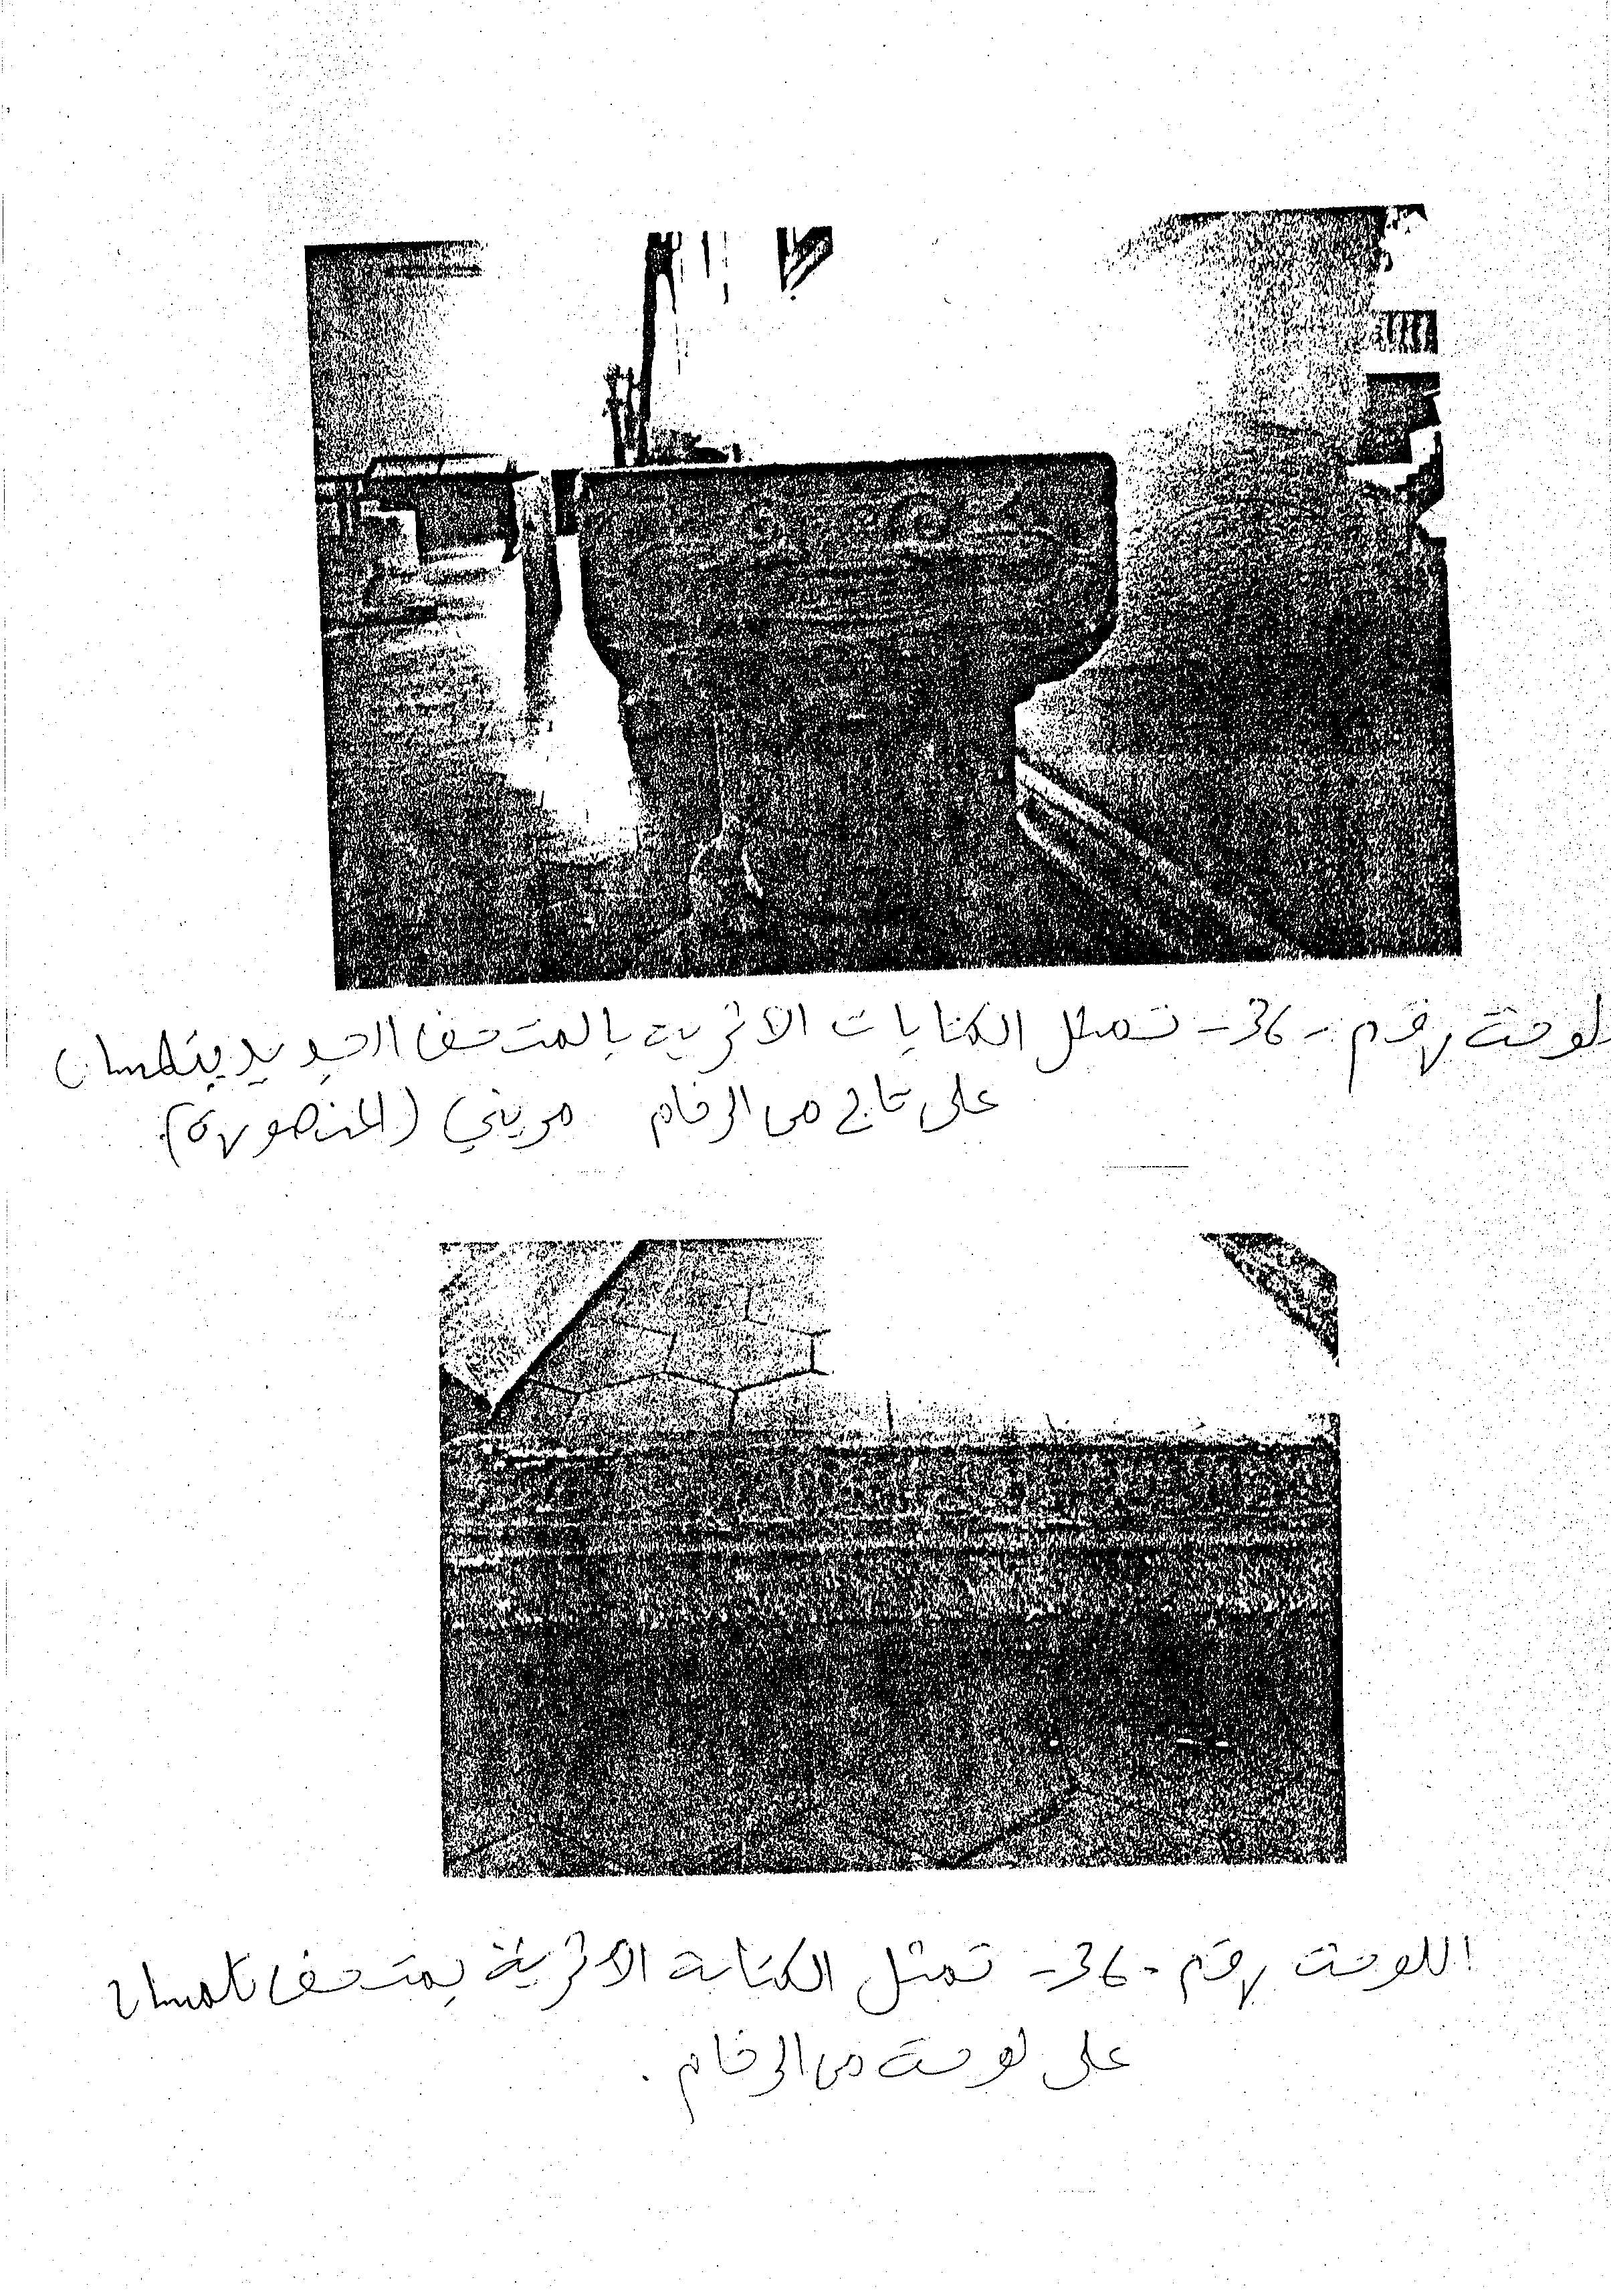 لوحة رقم -36- تمثل الكتابات الاثرية بالمتحف الجديد بتلمسان
على تاج من الرخام مريني (المنصورة).
اللوحة رقم -36- تمثل الكتابة الاثرية بمتحف تلمسان
على لوحة من الرخام.